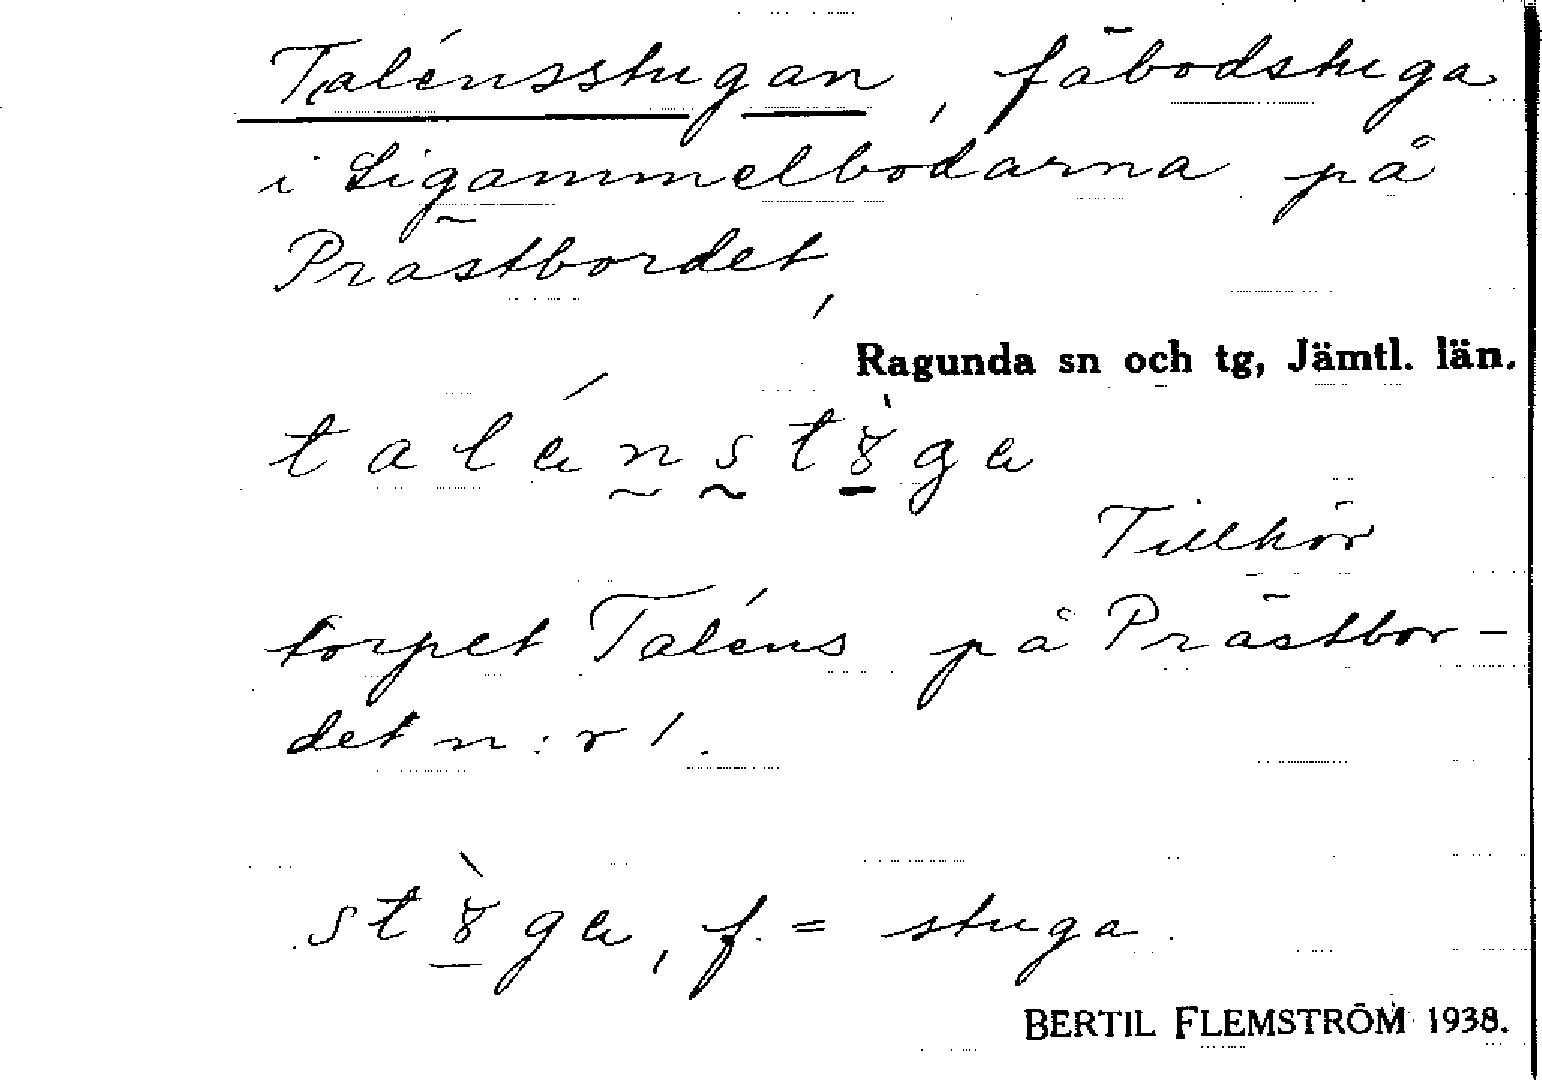 Talénsstugan, fäbodstuga
i Sigammelbodarna på
Prästbordet,
Ragunda sn och tg, Jämtl. län.
Tillhör
torpet Taléns på Prästbor-
det n:r 1.
f. = stuga.
BERTIL FLEMSTRÖM 1938.